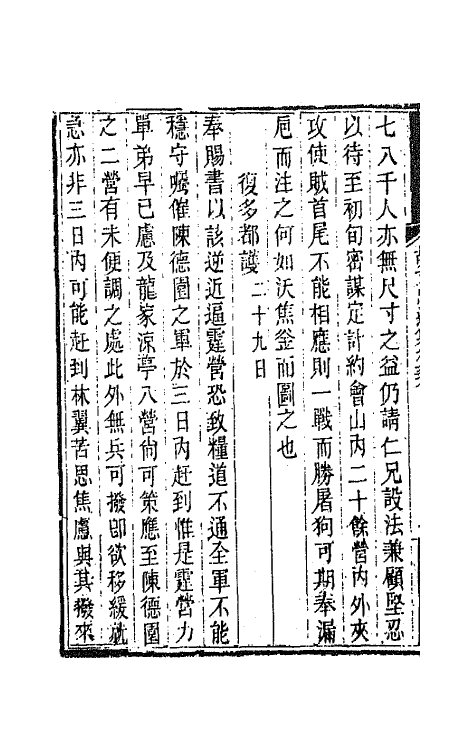 七八千人亦無尺寸之益仍請仁兄設法兼顧堅忍
以待至初旬密謀定計約會山內二十餘營內外夾
攻使賊首尾不能相應則一戰而勝屠狗可期奉漏
卮而注之何如沃焦釜而圖之也
復多都護二十九日
奉賜書以該逆近逼霆營恐致糧道不通全軍不能
穩守囑催陳德園之軍於三日內赶到惟是霆營力
單弟早已慮及龍家涼亭八營尙可策應至陳德園
之二營有未便調之處此外無兵可撥卽欲移緩就
急亦非三日內可能赶到林翼苦思焦慮與其撥來